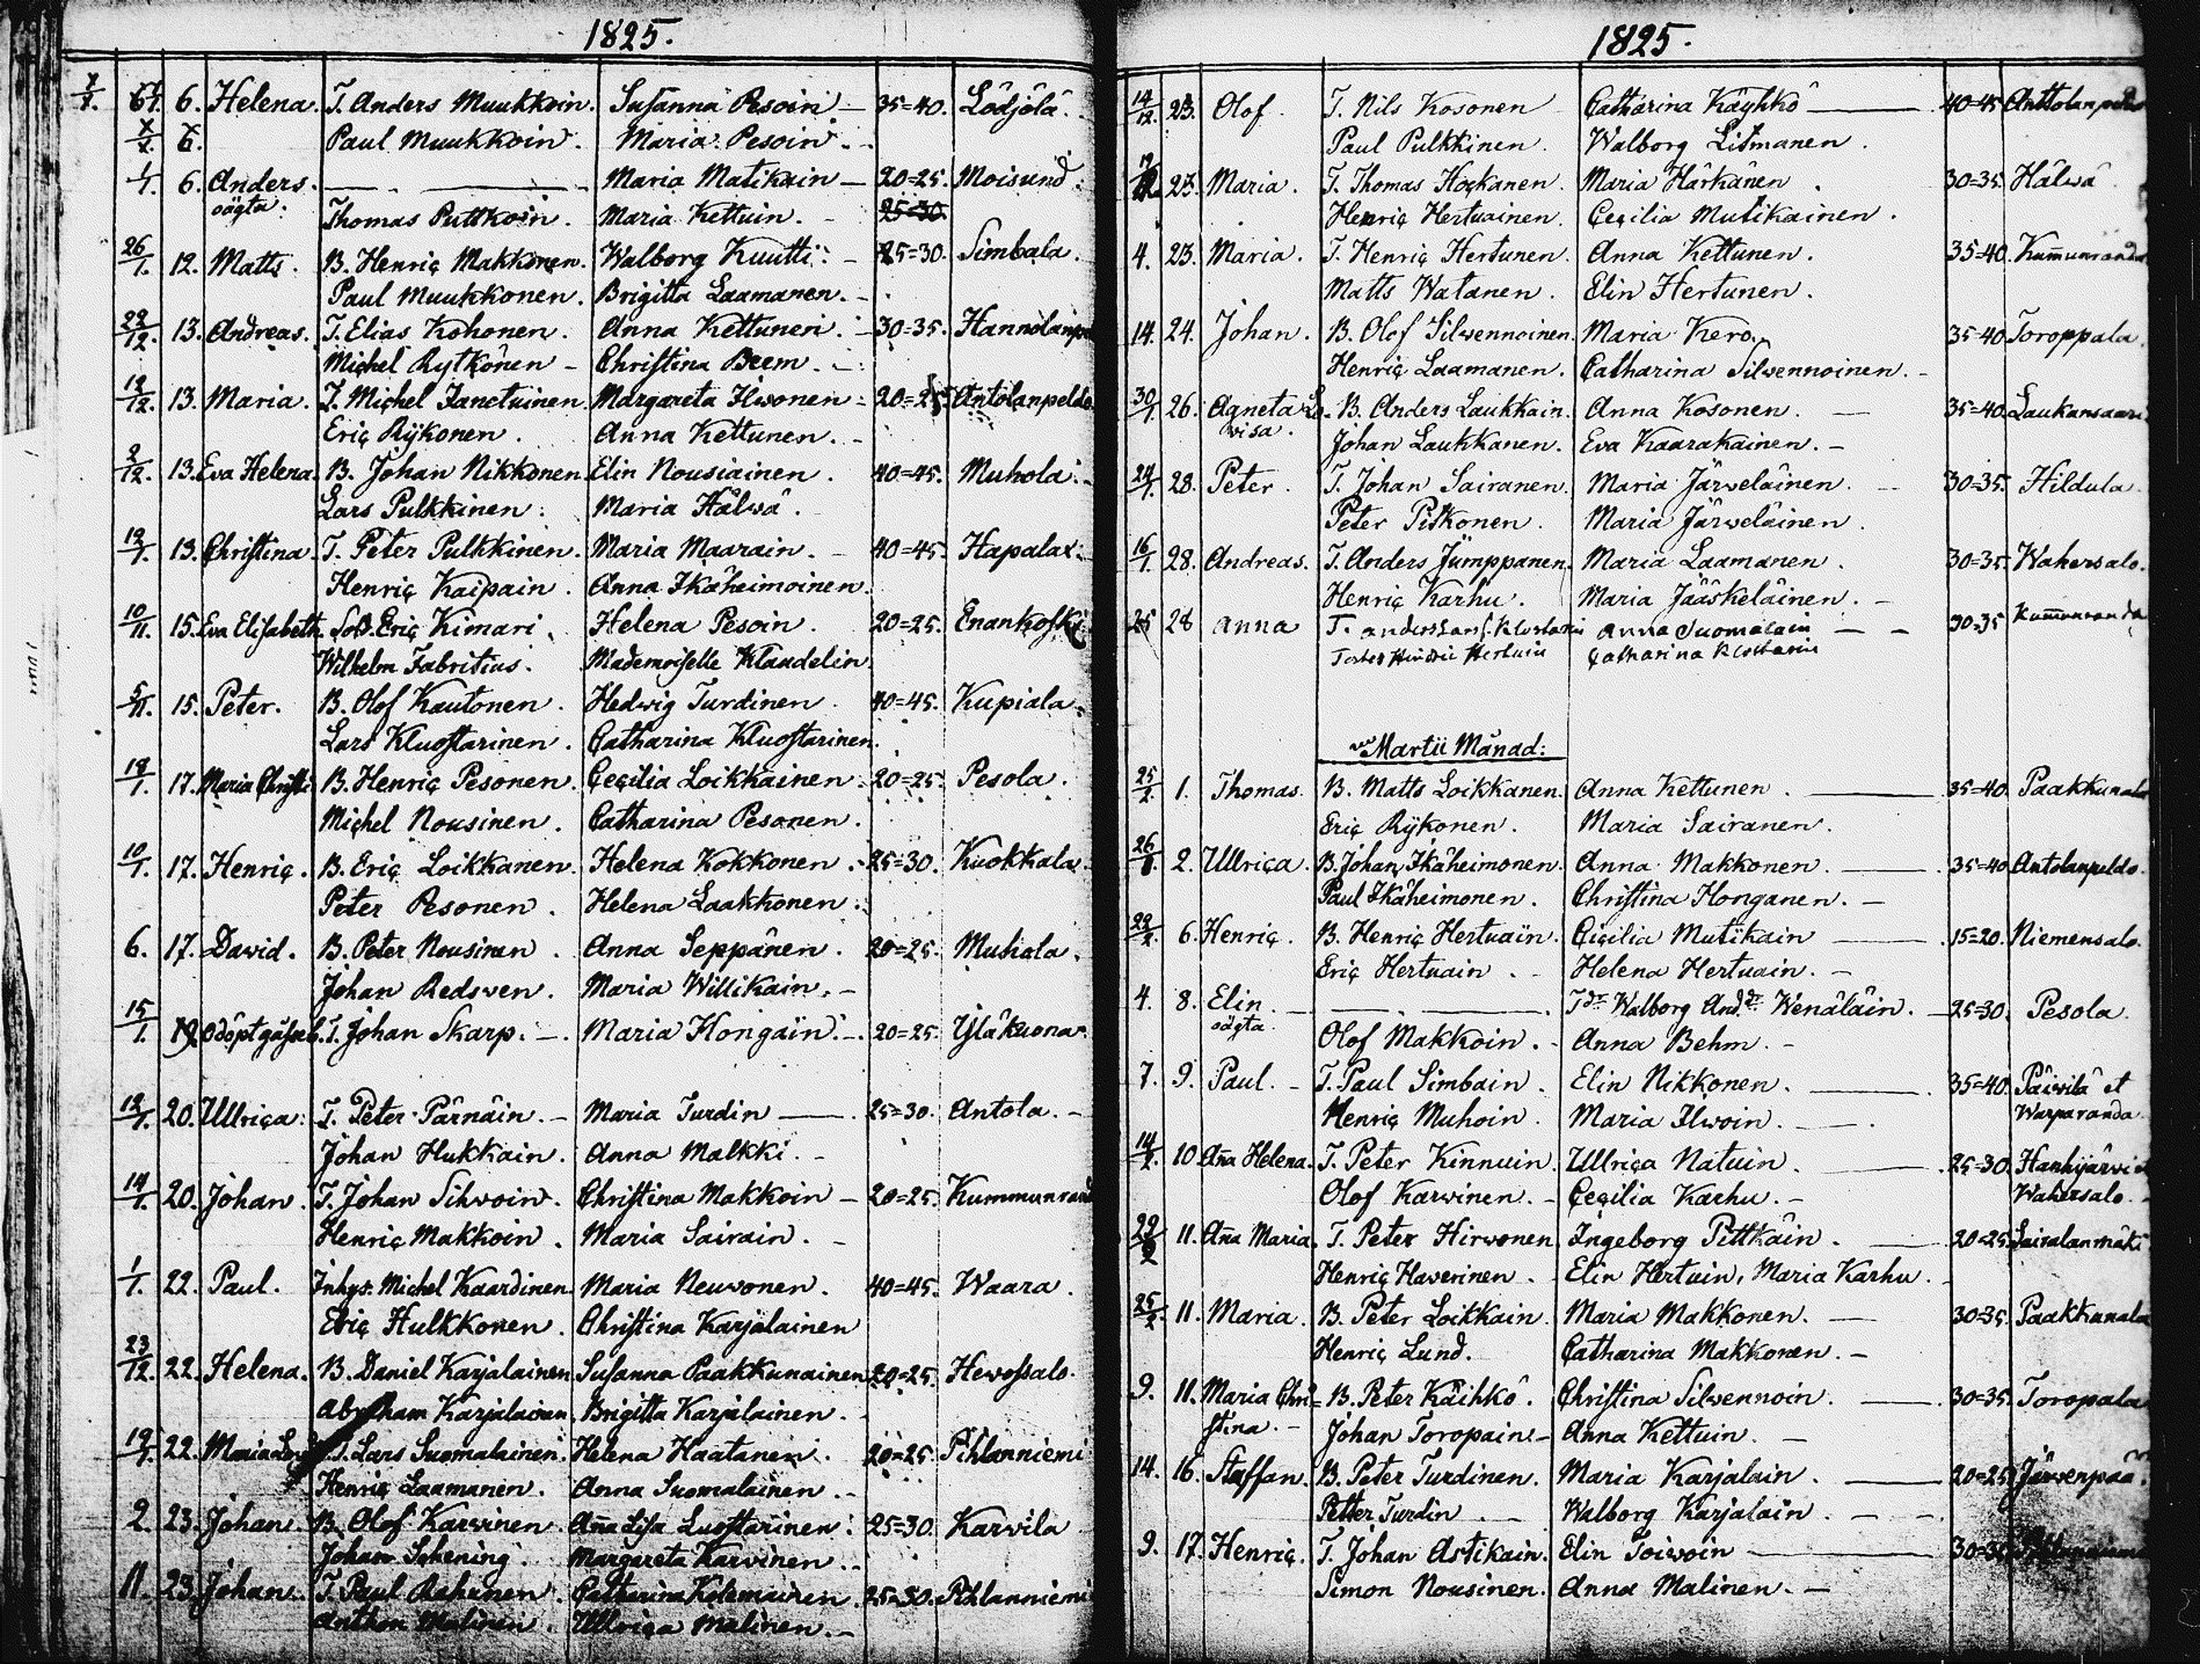 1825.
6. Helena. T. Anders Muukkoin. Susanna Pesoin 35=40. Lådjola.
6. Paul Muukkoin. Maria Pesoin.
1/1. 6. Anders. Maria Matikain 20=25. Moisund.
oägta. Thomas Puttkoin. Maria Kettuin. 25=30.
26/1. 12. Matts. B. Henriç Makkonen. Walborg Kuutti. 25=30. Simbala.
Paul Muukkonen. Brigitta Laamanen.
13. Andreas. T. Elias Kohonen. Anna Kettunen. 30=35.
Michel Rytkönen Christina Beem.
12/12. 13. Maria. T. Michel Margareta Ilwonen 20=25. Antolanpeldo
Eriç Rÿkonen. Anna Kettunen.
2/12. 13. Eva Helena. B. Johan Nikkonen Elin Nousiainen. 40=45. Muhola.
Lars Pulkkinen. Maria Hälwä.
12/1. 13. Christina. T. Peter Pulkkinen. Maria Maarain. 40=45. Hapalax.
Henriç Kaipain. Anna Ikäheimoinen.
10/11. 15. Eva Elisabeth. Eriç Kimari. Helena Pesoin. 20=25. Enankoski
Wilhelm Fabritius. Mademoiselle Klaudelin.
5/11. 15. Peter. B. Olof Kautonen. Hedwig Turdinen 40=45. Kupiala.
Lars Kluostarinen. Catharina Kluostarinen.
17. Maria Christi B. Henriç Pesonen. Ceçilia Loikkainen 20=25. Pesola.
Michel Nousinen. Catharina Pesonen.
10/1. 17. Henriç. B. Eriç Loikkanen. Helena Kokkonen. 25=30. Kuokkala.
Peter Pesonen. Helena Laakkonen.
6. 17. David. B. Peter Nousinen. Anna Seppänen. 20=25. Muhola.
Johan Redsven. Maria Willikain.
15/1. 19. T. Johan Skarp. Maria Hongain. 20=25. Yläkuona.
12/1. 20. Ullriça. T. Peter Pärnäin. Maria Turdin 25=30. Antola.
Johan Hukkain. Anna Malkki.
14/1. 20. Johan. T. Johan Sihwoin. Christina Makkoin 20=25. Kummunrand
Henriç Makkoin. Maria Sairain.
1/1. 22. Paul. Inhys. Michel Kaardinen. Maria Neuwonen. 40=45. Waara.
Eriç Hulkkonen. Christina Karjalainen
23/12. 22. Helena. B. Daniel Karjalainen Susanna Paakkunainen 20=25. Hewossalo.
Abraham Karjalainen. Brigitta Karjalainen.
22. Maria T. Lars Suomalainen. Helena Haatanen. 20=25. Pihlanniemi
Henriç Laamanen. Anna Suomalainen.
2. 23. Johan. B. Olof Karvinen. Aña Lisa Luostarinen. 25=30. Karvila
Johan Schening. Margareta Karvinen.
11. 23. Johan. T. Paul Rahunen. Catharina Kolemainen. 25=30. Pihlanniemi
Anthon Malinen. Ullriça Malinen.
1825.
14/12. 23. Olof. T. Nils Kosonen Catharina Käyhkö 40=45
Paul Pulkkinen. Walborg Litmanen.
23. Maria. T. Thomas Hockanen. Maria Härkänen. 30=35. Hälwä
Henriç Hertuainen. Ceçilia Mutikainen.
4. 23. Maria. T. Henriç Hertunen. Anna Kettunen. 35=40. Kum̄unranda
Matts Watanen. Elin Hertunen.
14. 24. Johan. B. Olof Silwennoinen. Maria Kero. 35=40 Toroppala.
Henriç Laamanen. Catharina Silwennoinen.
30/1. 26. Agneta Lo- B. Anders Laukkain. Anna Kosonen. 35=40. Laukansaari
visa. Johan Laukkanen. Eva Kaarakainen.
24/1. 28. Peter. T. Johan Sairanen. Maria Järveläinen. 30=35. Hildula.
Peter Pitkonen. Maria Järweläinen.
16/1. 28. Andreas. T. Anders Jumppanen. Maria Laamanen. 30=35. Wahersalo.
Henriç Karhu. Maria Jääskeläinen.
25 28 Anna T. Anders Anna Suomalain 30=35 Kum̄unranda
Catharina
Martii Månad:
25/2. 1. Thomas. B. Matts Loikkanen. Anna Kettunen. 35=40. Paakkunala
Eriç Rÿkonen. Maria Sairanen.
2. Ullriça. B. Johan Ikäheimonen. Anna Makkonen. 35=40 Antolanpeldo.
Paul Ikäheimonen. Christina Honganen.
22/2. 6. Henriç. B. Henriç Hertuain. Ciçilia Mutikain 15=20. Niemensalo.
Eriç Hertuain. Helena Hertuain.
4. 8. Elin Walborg Wenäläin. 25=30. Pesola.
oägta. Olof Makkoin. Anna Behm.
7. 9. Paul. T. Paul Simbain. Elin Nikkonen. 35=40. Päivilä et
Henriç Muhoin. Maria Ilwoin. Warparanda
14/2. 10. Aña Helena. T. Peter Kinnuin. Ullriça Natuin. 25=30. Hanhijärvi et
Olof Karvinen. Ceçilia Karhu. Wahersalo.
11. Aña Maria. T. Peter Hirwonen. Ingeborg Pittkäin. 20=25. Sairalanmäki
Henriç Haverinen. Elin Hertuin, Maria Karhu.
25/2. 11. Maria. B. Peter Loikkain. Maria Makkonen. 30=35. Paakkunala
Henriç Lund. Catharina Makkonen.
9. 11. Maria Chri= B. Peter Käihkö. Christina Silwennoin. 30=35. Toropala
stina. Johan Toropain. Anna Kettuin.
14. 16. Staffan. B. Peter Turdinen. Maria Karjalain. 20=25. Järvenpää.
Petter Turdin. Walborg Karjalain.
9. 17. Henriç. T. Johan Astikain. Elin Toiwoin
Simon Nousinen. Anna Malinen.